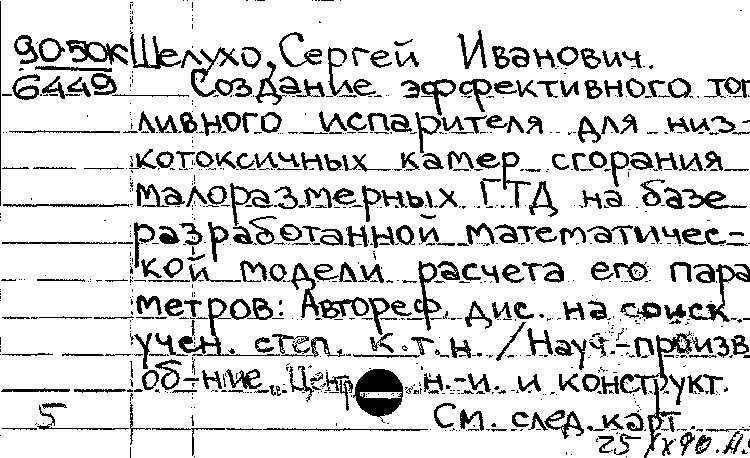 9050к Шелухо, Сергей Иванович.
6449 Создание эффективного топ
ливного испарителя для низ-
котоксичных камер сгорания
малоразмерных ГТД на базе
разработанной математичес-
кой модели расчета его пара
метров: Автореф. дис. на соиск
учен. степ. к.т.н. / Науч.-произв
об-ние "Центр н.-и. и конструкт.
5 См. след. карт.